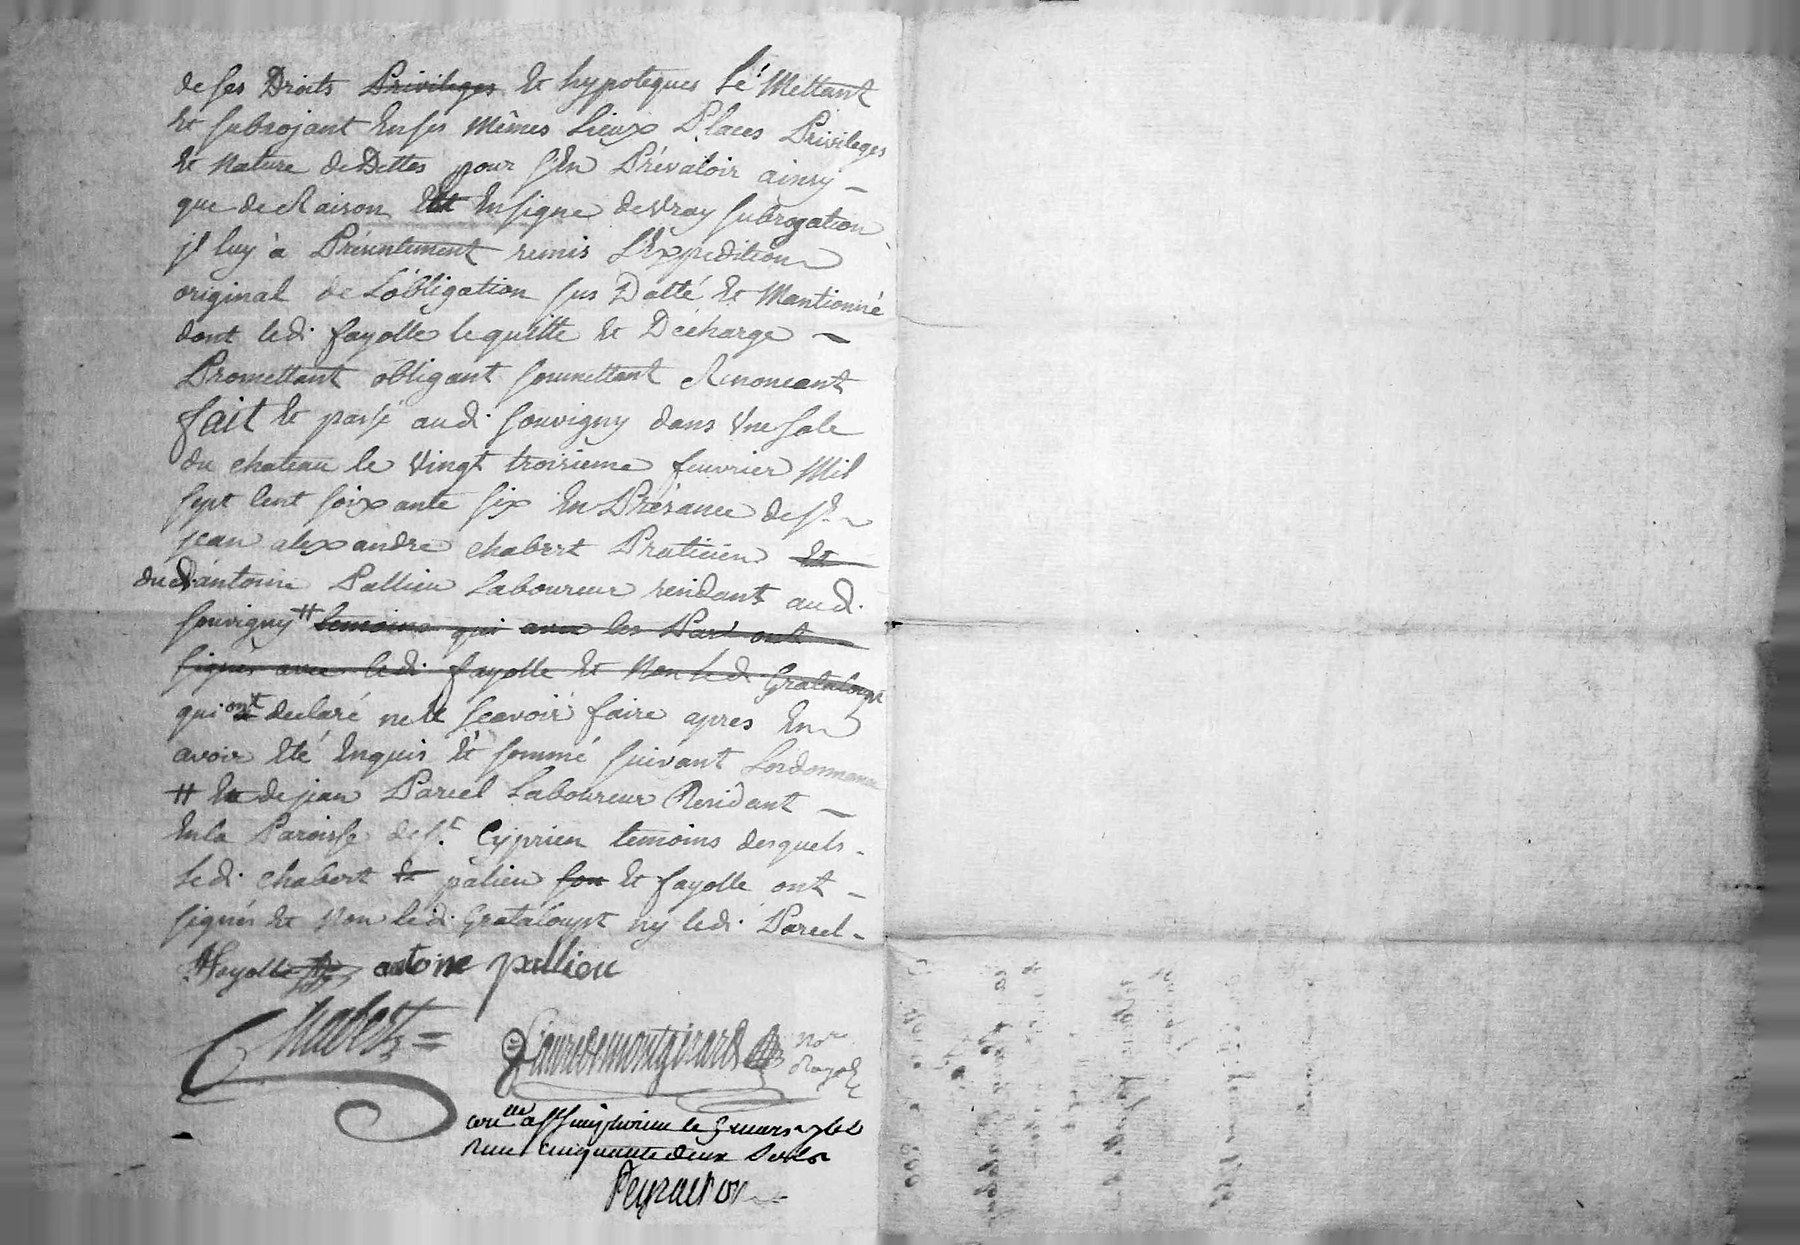 de ses Droits Privileges Et hypoteques Le Mettant
Et subrojant En ses Mêmes Lieux Places Privileges
Et Nature de Dettes pour s'En Prévaloir ainsy
que de Raison Et En signe de Vray subrogation
jl luy à Présentement remis L'Expedition
original de L'obligation sus Datté Et Mantionné
dont ledi. fayolle le quitte Et Décharge
Promettant obligant soumettant Renoncant
fait Et passé audi. souvigny dans Vne sale
du chateau le Vingt troisieme feuvrier Mil
sept Cent soixante six En Présance de sr.
jean alexandre chabert Praticien Et
du di antoine Pallieu Laboureur residants audi.
souvigny # temoins qui avec les Par ont
signés avec ledi. fayolle Et Non Ledi. Grataloupt
qui ont declaré ne le sçavoir faire apres En
avoir Eté Enquis Et sommé suivant Lordonnance
# Et de jean Parcel Laboureur Residant
En la Paroisse de st. Cyprien temoins desquels
Ledi. chabert Et palieu Et fayolle ont
signés Et Non ledi. Grataloupt ny ledi. Parcel
fayolle antoine pallieu
Chabert
demontgirard Nore Royal
le 3 mars
cinquante deux sols